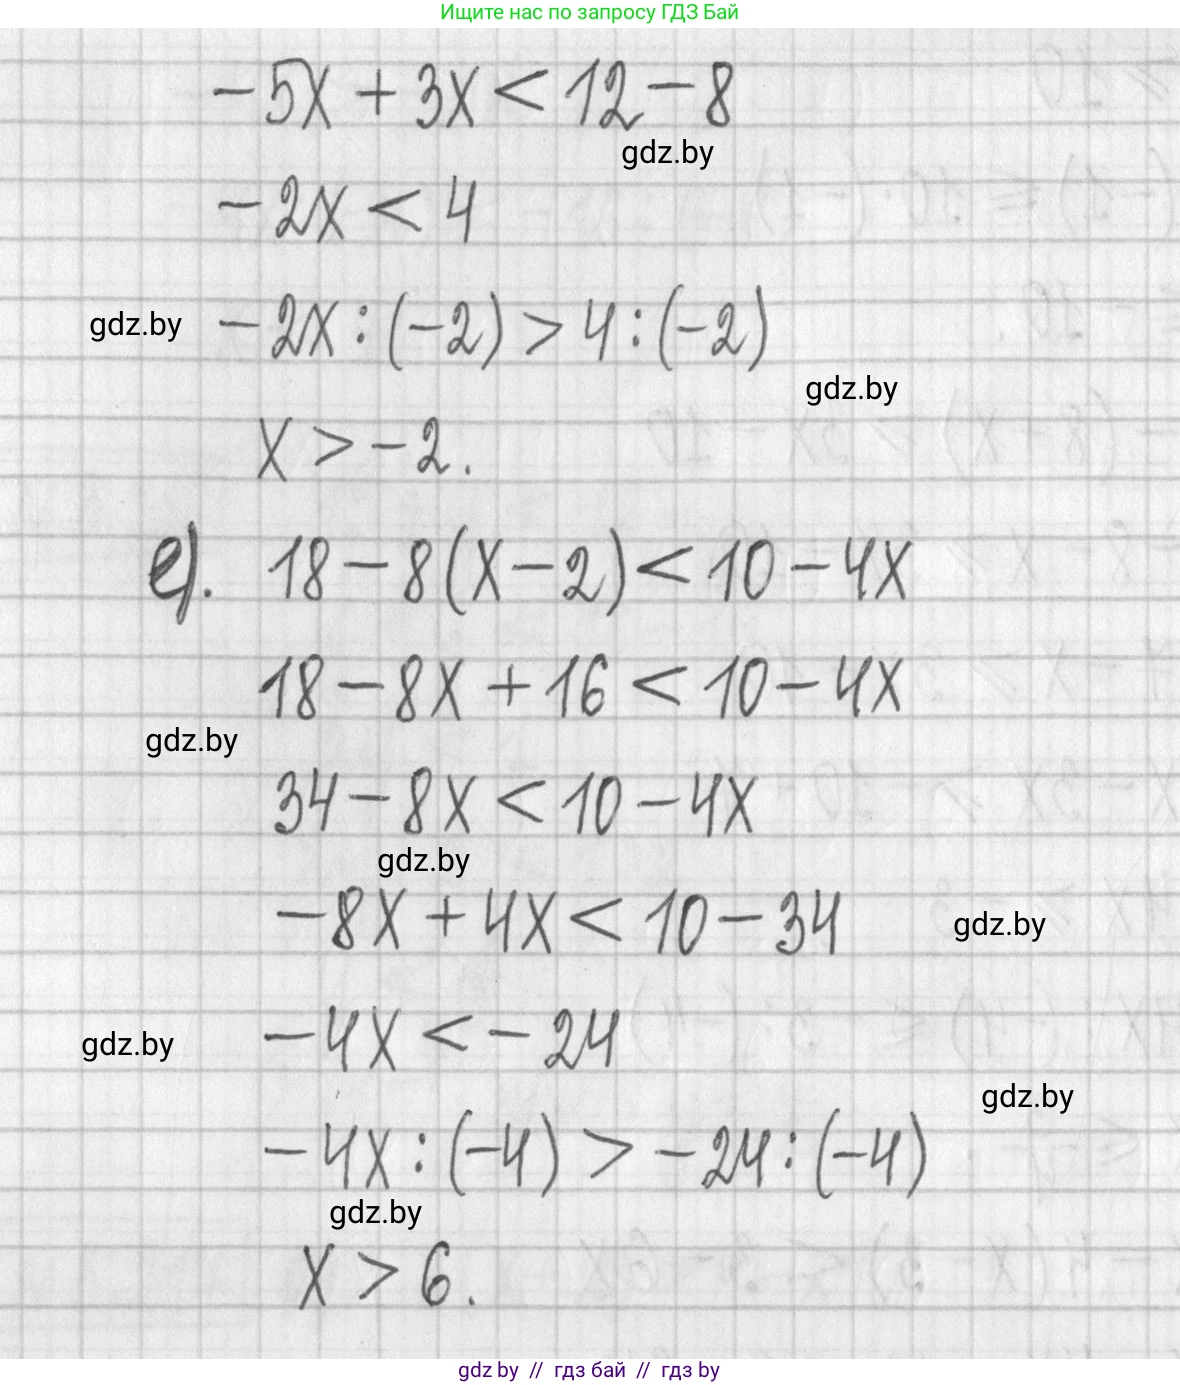 Ищите нас по запросу ГДЗ Бай
-5x + 3x < 12 - 8
gdz.by
-2x < 4
gdz.by -2x : (-2) > 4 : (-2)
gdz.by
x > -2.
е). 18 - 8(x - 2) < 10 - 4x
18 - 8x + 16 < 10 - 4x
gdz.by
34 - 8x < 10 - 4x
gdz.by
-8x + 4x < 10 - 34
gdz.by
-4x < -24
gdz.by
gdz.by
-4x : (-4) > -24 : (-4)
gdz.by
x > 6.
gdz by // гдз бай // гдз by